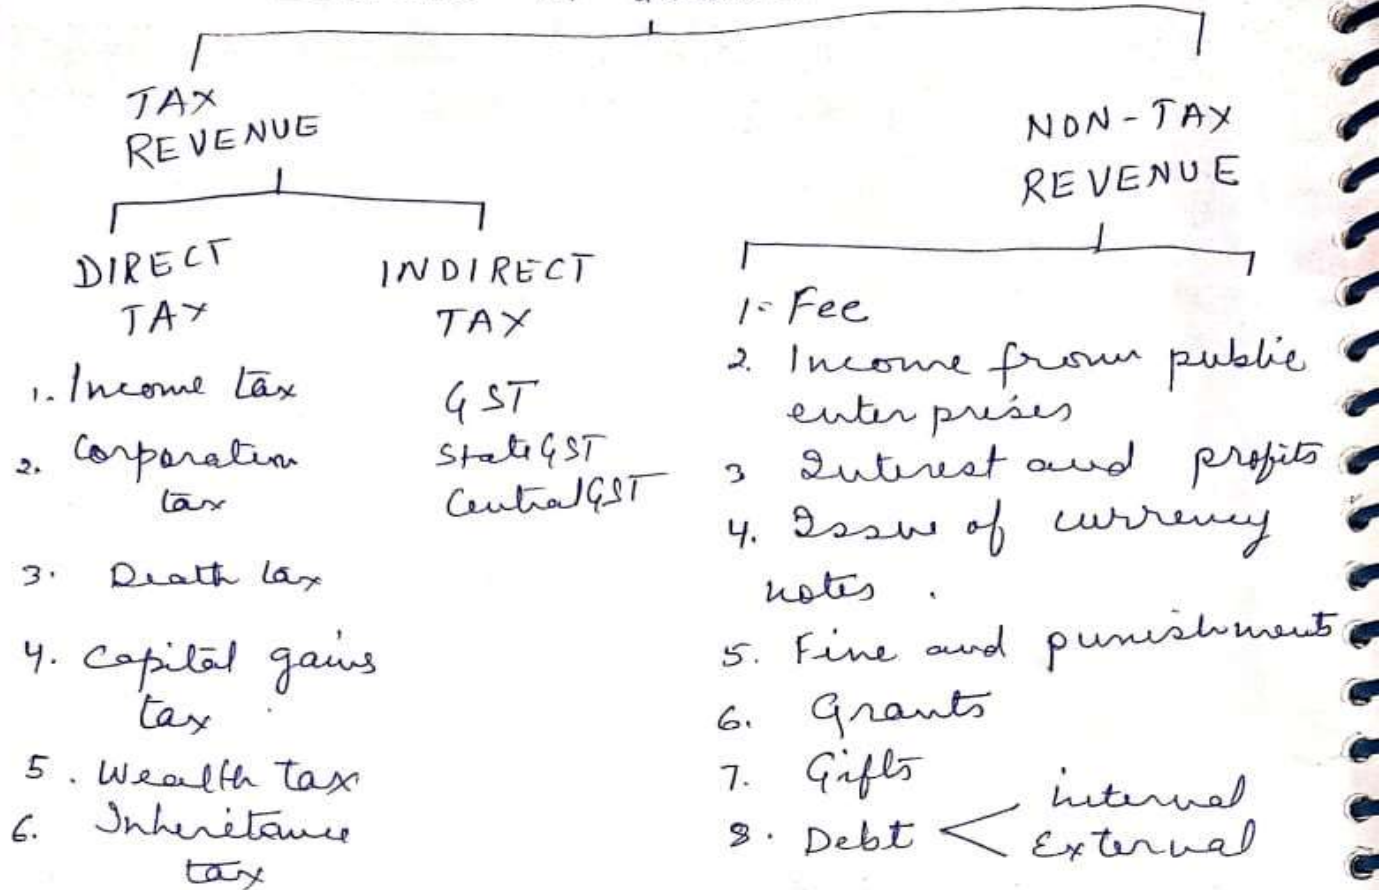 TAX
REVENUE
NON-TAX
REVENUE
DIRECT
TAX
INDIRECT
TAX
1. Income tax
2. Corporation
tax
3. Death tax
4. Capital gains
tax
5. Wealth tax
6. Inheritance
tax
GST
State GST
Central GST
1. Fee
2. Income from public
enterprises
3 Interest and profits
4. Issue of currency
notes.
5. Fine and punishment
6. Grants
7. Gifts
8. Debt
internal
External